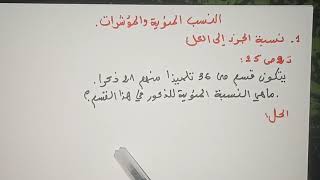 النسب المئوية والمؤشرات.
1. نسبة الجزء إلى الكل
ت 2 ص 25:
يتكون قسم من 36 تلميذا منهم 18 ذكرا.
ماهي النسبة المئوية للذكور في هذا القسم؟
الحل: